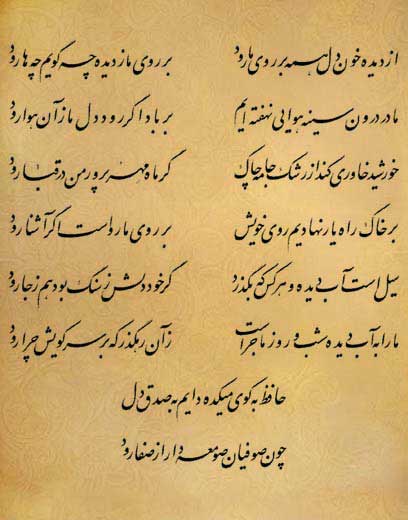 از دیده خون دل همه بر روی ما رود بر روی ما ز دیده چه گویم چه‌ها رود
ما در درون سینه هوایی نهفته‌ایم بر باد اگر رود دل ما زآن هوا رود
خورشید خاوری کند از رشک جامه چاک گر ماه مهرپرور من در قبا رود
بر خاک راه یار نهادیم روی خویش بر روی ما رواست اگر آشنا رود
سیل است آب دیده و هر کس که بگذرد گر خود دلش ز سنگ بود هم ز جا رود
ما را به آب دیده شب و روز ماجراست زآن رهگذر که بر سر کویش چرا رود
حافظ به کوی میکده دایم به صدق دل
چون صوفیان صومعه‌دار از صفا رود